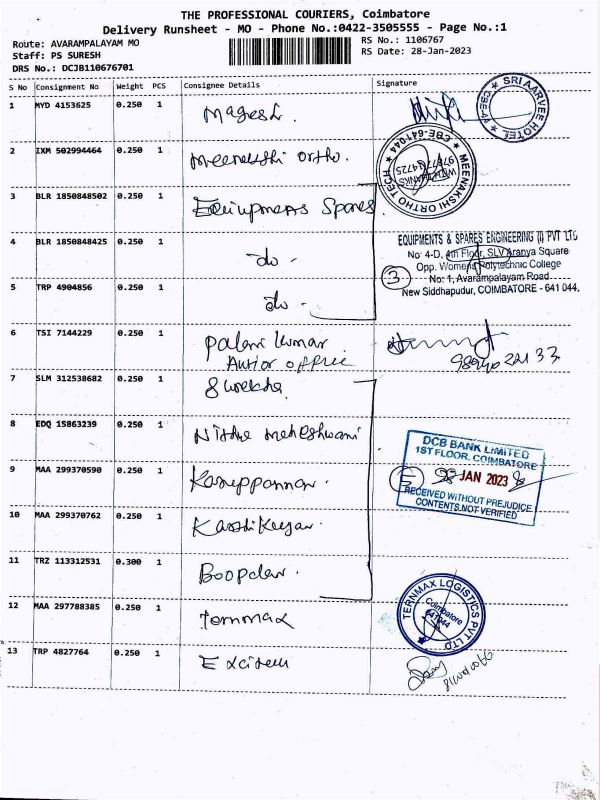 THE PROFESSIONAL COURIERS, Coimbatore
Delivery Runsheet - MO - Phone No.:0422-3505555 - Page No.:1
Route: AVARAMPALAYAM MO
RS No.: 1106767
Staff: PS SURESH
RS Date: 28-Jan-2023
DRS No.: DCJB110676701
S No Consignment No Weight PCS Consignee Details Signature
1 MYD 4153625 0.250 1 Magesh.
SRI AARVEE HOTEL
CBE-44
2 IXM 502994464 0.250 1 Meenakshi ortho.
MEENAKSHI ORTHO TECH
CBE-641044
WITH THANKS
3 BLR 1850848502 0.250 1 Equipments Spares
4 BLR 1850848425 0.250 1 - do -
EQUIPMENTS & SPARES ENGINEERING (I) PVT LTD
No: 4-D, 4th Floor, SLV Aranya Square
Opp. Womens Polytechnic College
3 No: 1, Avarampalayam Road
New Siddhapudur, COIMBATORE - 641 044.
5 TRP 4904856 0.250 1 do -
6 TSI 7144229 0.250 1 Palani Kumar
7 SLM 312538682 0.250 1
8 EDQ 15863239 0.250 1
DCB BANK LIMITED
1ST FLOOR, COIMBATORE
28 JAN 2023
RECEIVED WITHOUT PREJUDICE
CONTENTS NOT VERIFIED
9 MAA 299370590 0.250 1 Karuppannan.
10 MAA 299370762 0.250 1 Karthikeyan.
11 TRZ 113312531 0.300 1
12 MAA 297788385 0.250 1 Ternmax
TERNMAX LOGISTICS PVT LTD
Coimbatore
641044
13 TRP 4827764 0.250 1